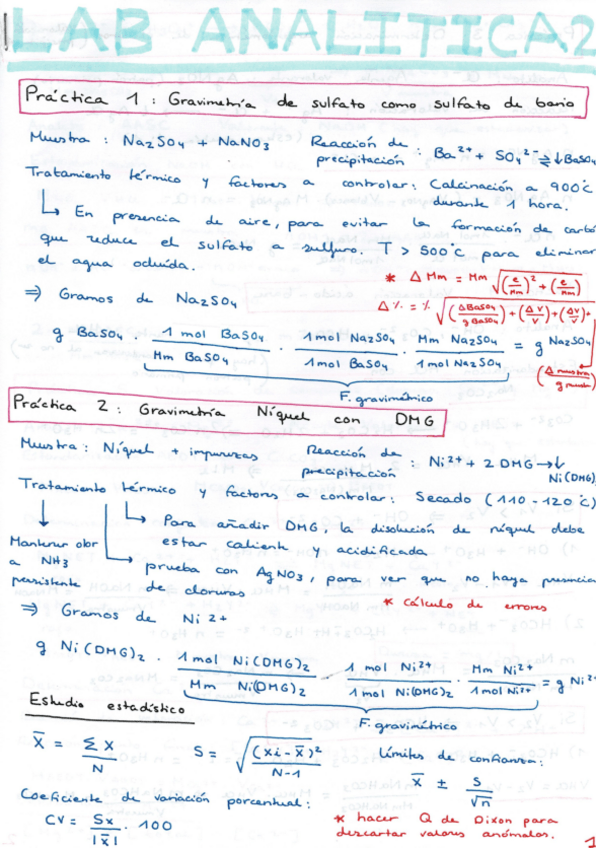 LAB ANALITICA 2
Práctica 1 : Gravimetría de sulfato como sulfato de bario
Muestra : Na2SO4 + NaNO3 Reacción de precipitación : Ba2+ + SO4 2- ⇌ ↓BaSO4
Tratamiento térmico y factores a controlar: Calcinación 900°C
durante 1 hora.
↳ En presencia de aire, para evitar la formación de carbó
que reduce el sulfato a sulfuro. T > 500°C para eliminar
el agua ocluida.
* Δ Mm = Mm √(e/Mm)² + (e/Mm)
⇒ Gramos de Na2SO4
Δ% = % √(ΔBaSO4/g BaSO4) + (ΔV/V) + (ΔV/V) +
g BaSO4 · 1 mol BaSO4/Mm BaSO4 · 1 mol Na2SO4/1 mol BaSO4 · Mm Na2SO4/1 mol Na2SO4 = g Na2SO4
(Δ muestra/g muestra)
F. gravimétrico
Práctica 2 : Gravimetría Níquel con DMG
Muestra : Níquel + impurezas Reacción de precipitación : Ni2+ + 2 DMG → ↓ Ni(DMG)
Tratamiento térmico y factores a controlar: Secado (110 - 120°C)
↳ Para añadir DMG, la disolución de níquel debe
estar caliente y acidificada
Mantener olor
a NH3
persistente
prueba con AgNO3, para ver que no haya presencia
de cloruros
* cálculo de errores
⇒ Gramos de Ni 2+
g Ni(DMG)2 · 1 mol Ni(DMG)2/Mm Ni(DMG)2 · 1 mol Ni2+/1 mol Ni(DMG)2 · Mm Ni2+/1 mol Ni2+ = g Ni2+
F. gravimétrico
Estudio estadístico
X̄ = Σ X/N S = √(Xi - X̄)²/N-1 Límites de confianza:
X̄ ± S/√n
Coeficiente de variación porcentual:
CV = Sx/|x̄| · 100
* hacer Q de Dixon para
descartar valores anómalos.
1